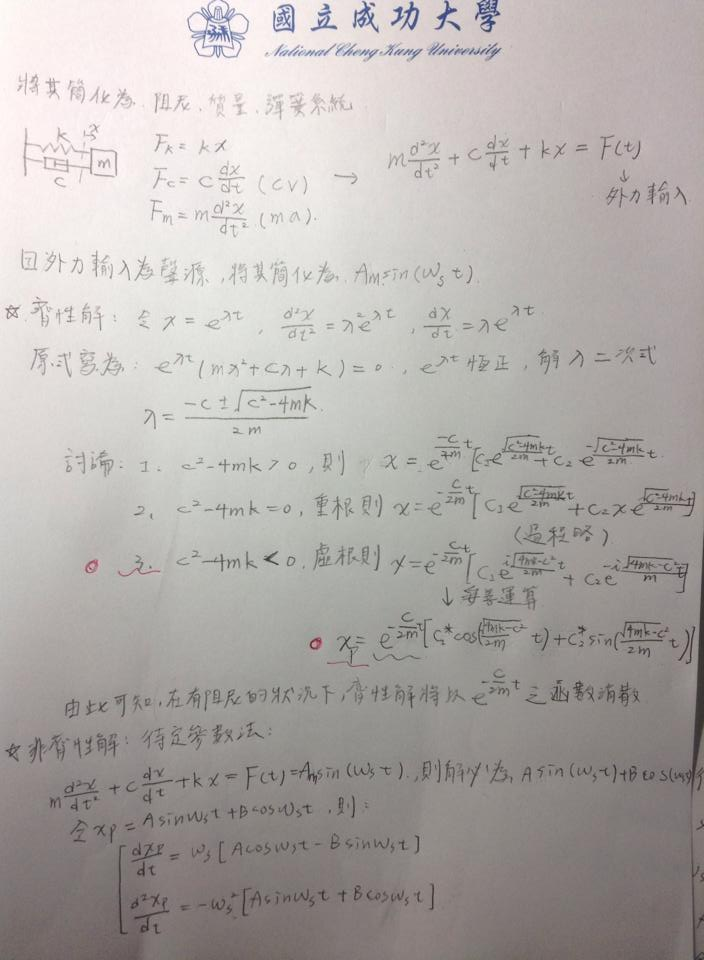 國立成功大學
National Cheng Kung University
將其簡化為 阻尼、質量、彈簧系統
k x
m
c
Fk = kx
Fc = c dx/dt (cv) → m d²x/dt² + c dx/dt + kx = F(t)
Fm = m d²x/dt² (ma). ↓
外力輸入
因外力輸入為聲源,將其簡化為 Am sin(ωs t).
☆ 齊性解: 令 x = e^λt , d²x/dt² = λ²e^λt , dx/dt = λe^λt
原式寫為: e^λt (mλ²+cλ+k) = 0 , e^λt 恒正, 解 λ 二次式
λ = (-c ± √(c²-4mk))/2m
討論: 1. c²-4mk > 0 , 則 x = e^(-c/2m t) [c₁e^(√(c²-4mk)/2m t) + c₂ e^(-√(c²-4mk)/2m t)
2. c²-4mk = 0, 重根則 x = e^(-c/2m t) [c₁e^(√(c²-4mk)t/2m) + c₂xe^(√(c²-4mk)t/2m)]
(過程略)
3. c²-4mk < 0, 虛根則 x = e^(-c/2m t) [c₁e^(i√(4mk-c²)/2m t) + c₂e^(-i√(4mk-c²)t/m)]
↓ 運算
x = e^(-c/2m t) [c₁* cos(√(4mk-c²)/2m t) + c₂* sin(√(4mk-c²)/2m t)]
由此可知, 在有阻尼的狀況下, 齊性解將以 e^(-c/2m t) 之函數消散
☆ 非齊性解: 待定參數法:
m d²x/dt² + c dx/dt + kx = F(t) = Am sin(ωs t) , 則解必為 A sin(ωs t) + B cos(ωs t)
令 xp = A sin ωs t + B cos ωs t , 則:
dxp/dt = ωs [A cos ωs t - B sin ωs t]
d²xp/dt = -ωs² [A sin ωs t + B cos ωs t]